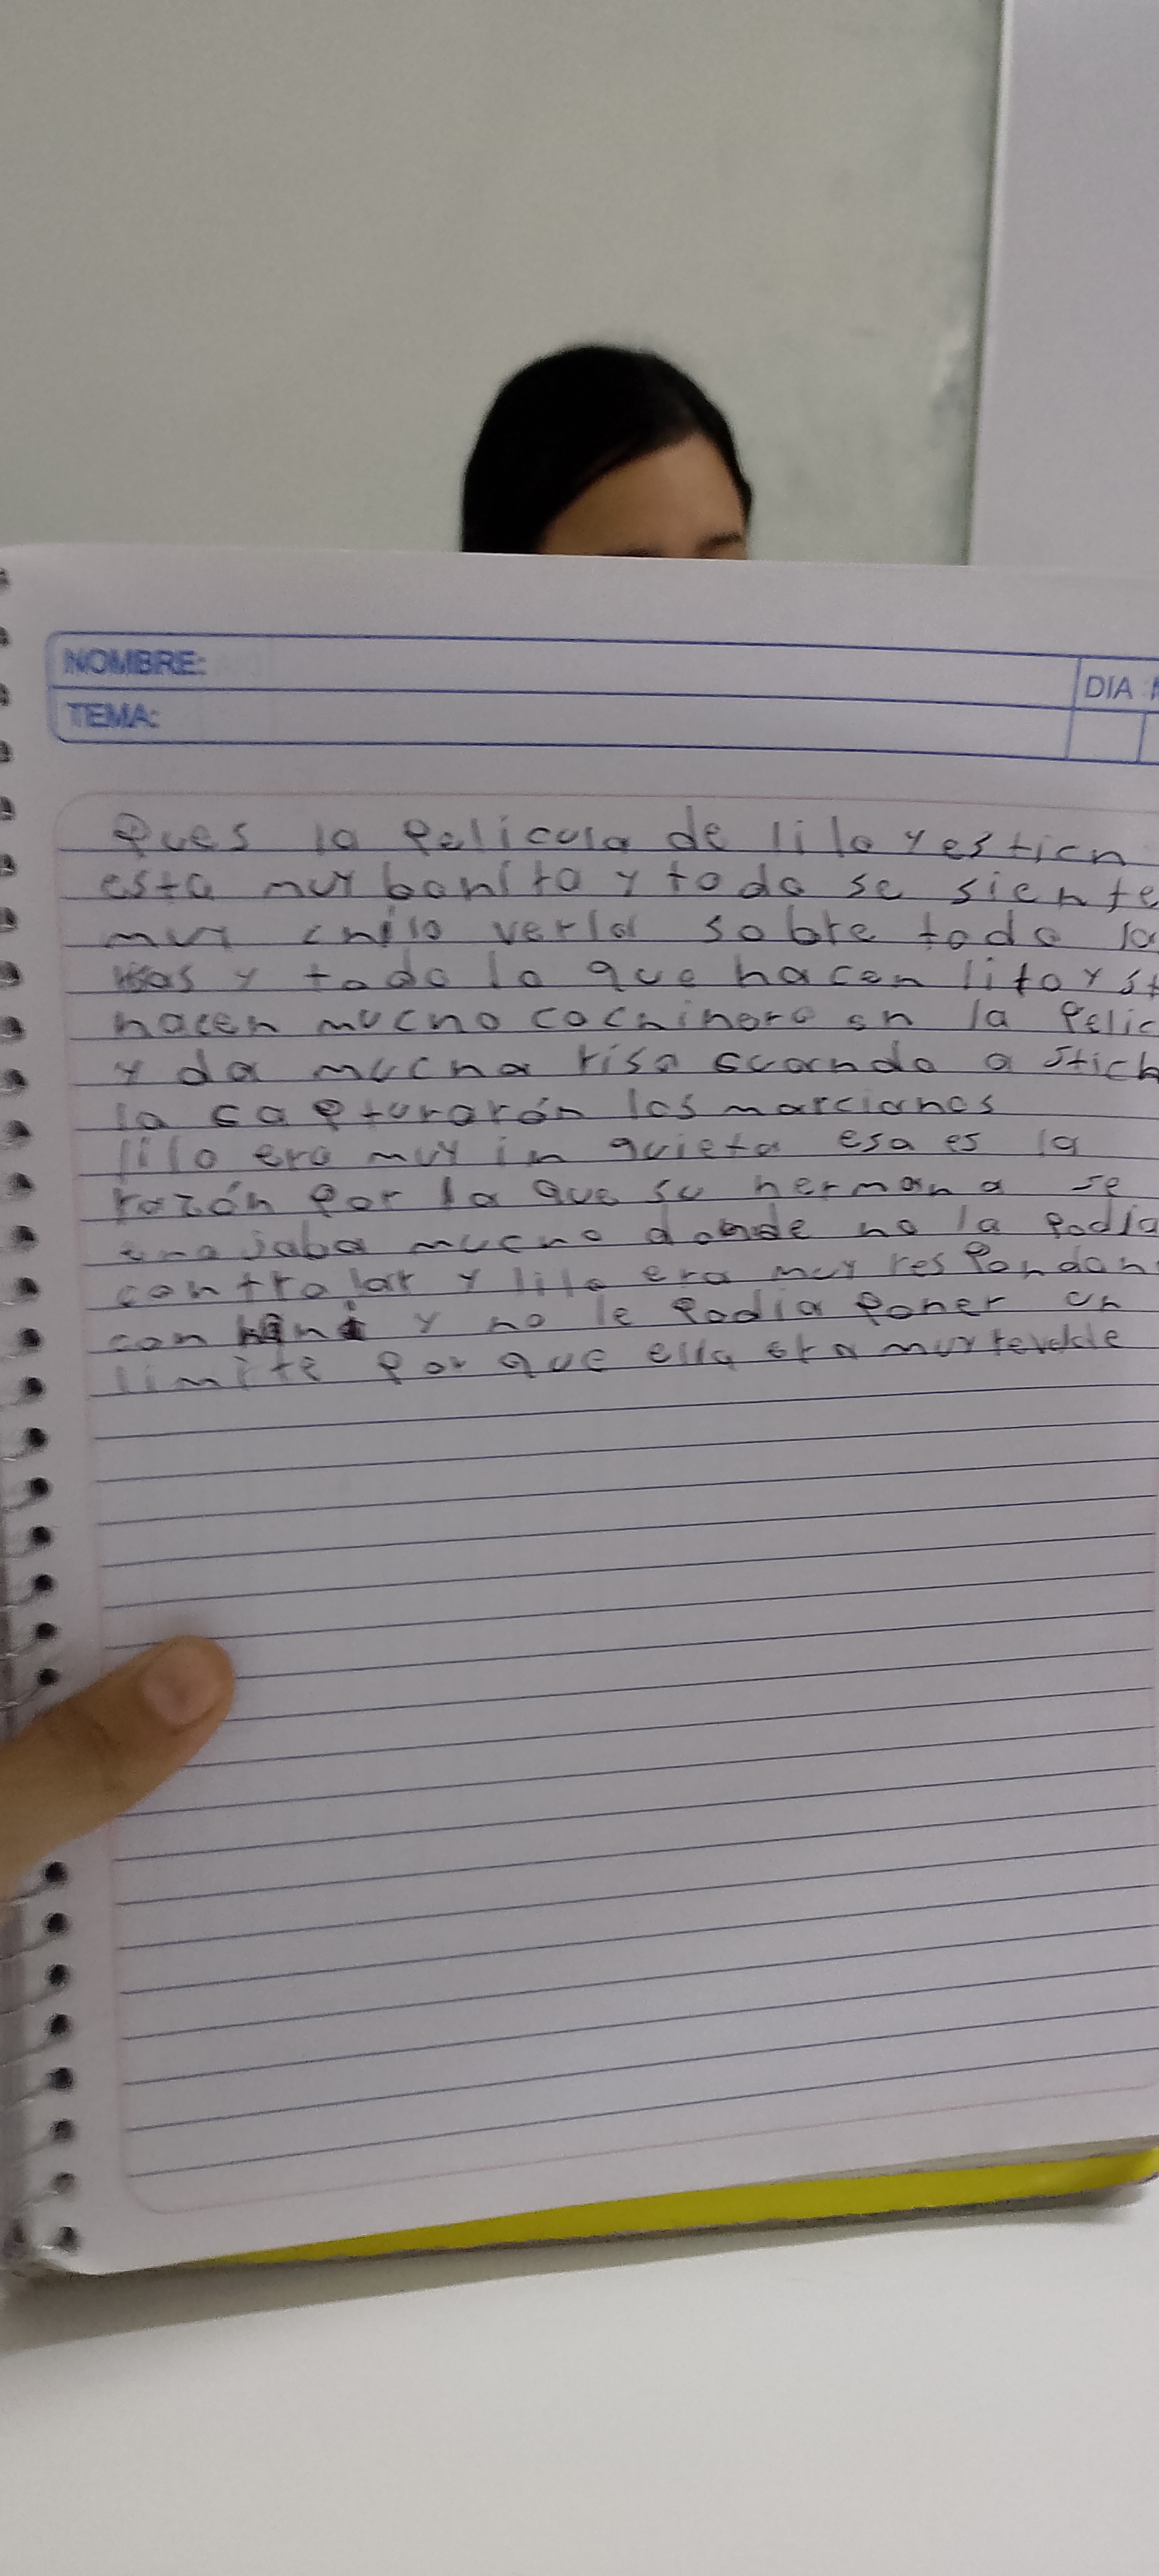 NOMBRE:
DIA
TEMA:
Pues la Pelicula de lilo y estich
esta muy bonito y todo se siente
muy chilo verla sobre todo la
risas y todo lo que hacen lito y st
hacen mucho cochinero en la Pelic
y da mucha risa cuando a stich
la capturarón los marcianos
lilo era muy in quieta esa es la
razón por la que su hermana se
enojaba mucho donde no la podia
controlar y lilo era muy respondon
con nani y no le podia poner un
limite por que ella era muy revelde